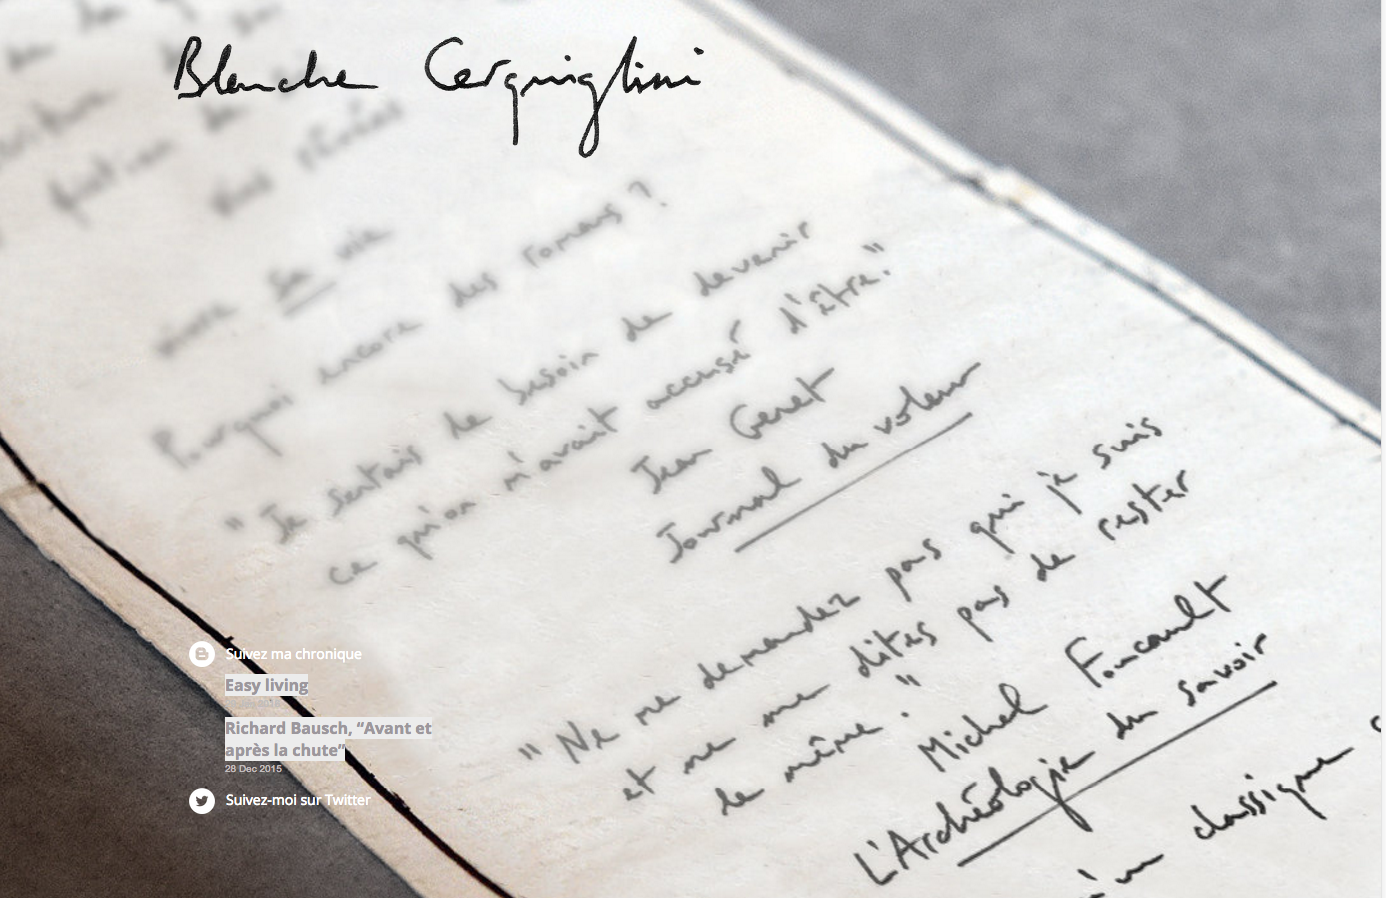 Blanche Cerquiglini
vivre sa vie
Pourquoi encore des romans ?
"Je sentais le besoin de devenir
ce qu'on m'avait accusé d'être."
Jean Genet
Journal du voleur
"Ne me demandez pas qui je suis
et ne me dites pas de rester
le même."
Michel Foucault
L'Archéologie du savoir
classique
Suivez ma chronique
Easy living
Richard Bausch, “Avant et
après la chute”
28 Dec 2015
Suivez-moi sur Twitter